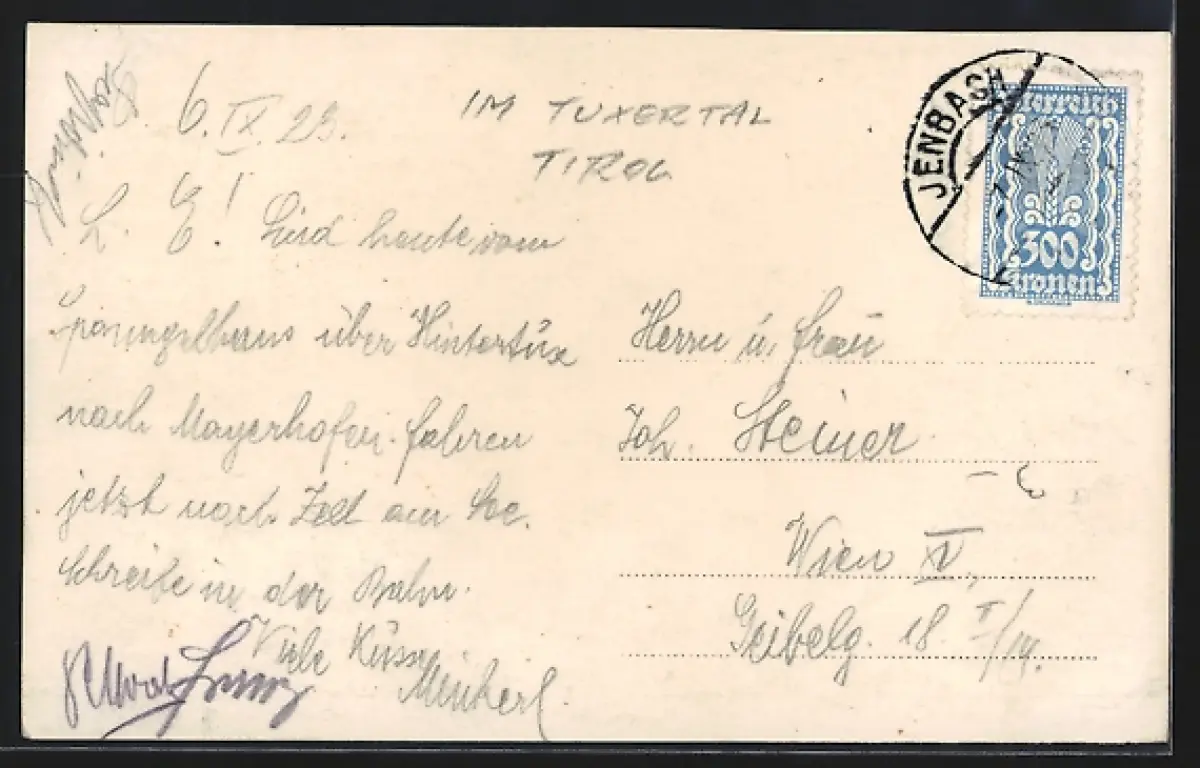 6. IX. 23.
IM TUXERTAL
TIROL
L. E! Sind heute vom
Spannagelhaus über Hintertux
nach Mayerhofen. fahren
jetzt nach Zell am See.
Schreibe in der Bahn.
Viele Küsse
JENBACH
Österreich
300
Kronen
Herrn u. Frau
Joh. Steiner
Wien XV.
Geibelg. 18 I/14.